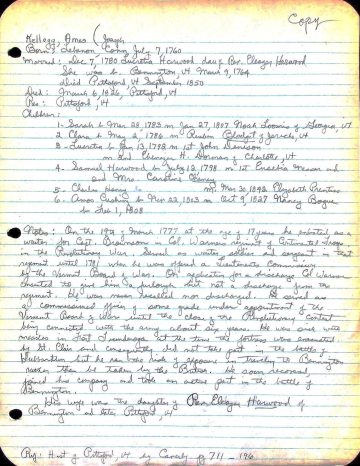 Copy
Kellogg, Amos (Joseph
Born: Lebanon, Conn July 7, 1760
Married: Dec 7, 1780 Lucretia Harwood dau of Rev. Eleazer Harwood
She was b. Bennington, Vt March 9, 1764
died Pittsford Vt September 1850
Died: March 6, 1826, Pittsford, Vt
Res: Pittsford, Vt
Children:
1- Sarah b Mar 28, 1783 m Jan 27, 1807 Noah Loomis of Georgia, Vt
2 Clara b May 2, 1786 m Reuben Blodget of Jericho, Vt
3- Lucretia b Jan 13, 1798 m 1st John Denison
m 2nd Ebenezer H. Dorman of Charlotte, Vt
4- Samuel Harwood b July 13, 1798 m 1st Mason and
2nd Mrs. Caroline
5- Charles Henry b m Mar 30, 1842 Elizabeth Prentiss
6- Amos Cushing b Nov 22, 1803 m Oct 9, 1827 Nancy Bogue
b Feb 1, 1808
Notes: On the 19 of March 1777 at the age of 17 years he enlisted as a
waiter for Capt. in Col. Warner's regiment of Continental Troops
in the Revolutionary War & served as waiter, soldier and sergeant in that
regiment until 1781 when he was offered a Lieutenants Commission
by the Vermont Board of War. On application for a discharge Col Warner
consented to give him a furlough but not a discharge from the
regiment. He was never mustered nor discharged. He served as
a Commissioned officer of some grade under appointment of the
Vermont Board of War until the close of the Revolutionary Contest
being connected with the army about six years. He was sick with
measles in Fort Ticonderoga at the time the fortress was evacuated
by St Clair and consequently did not take part in the battle of
Hubbardton but he ran the risk of exposure in traveling to Bennington
rather than be taken by the British. He soon recovered
joined his company and took an active part in the battle of
Bennington.
His wife was the daughter of Rev. Eleazer Harwood of
Bennington and later Pittsford, Vt
Hist of Pittsford, Vt by Caverly pg 711 - 196